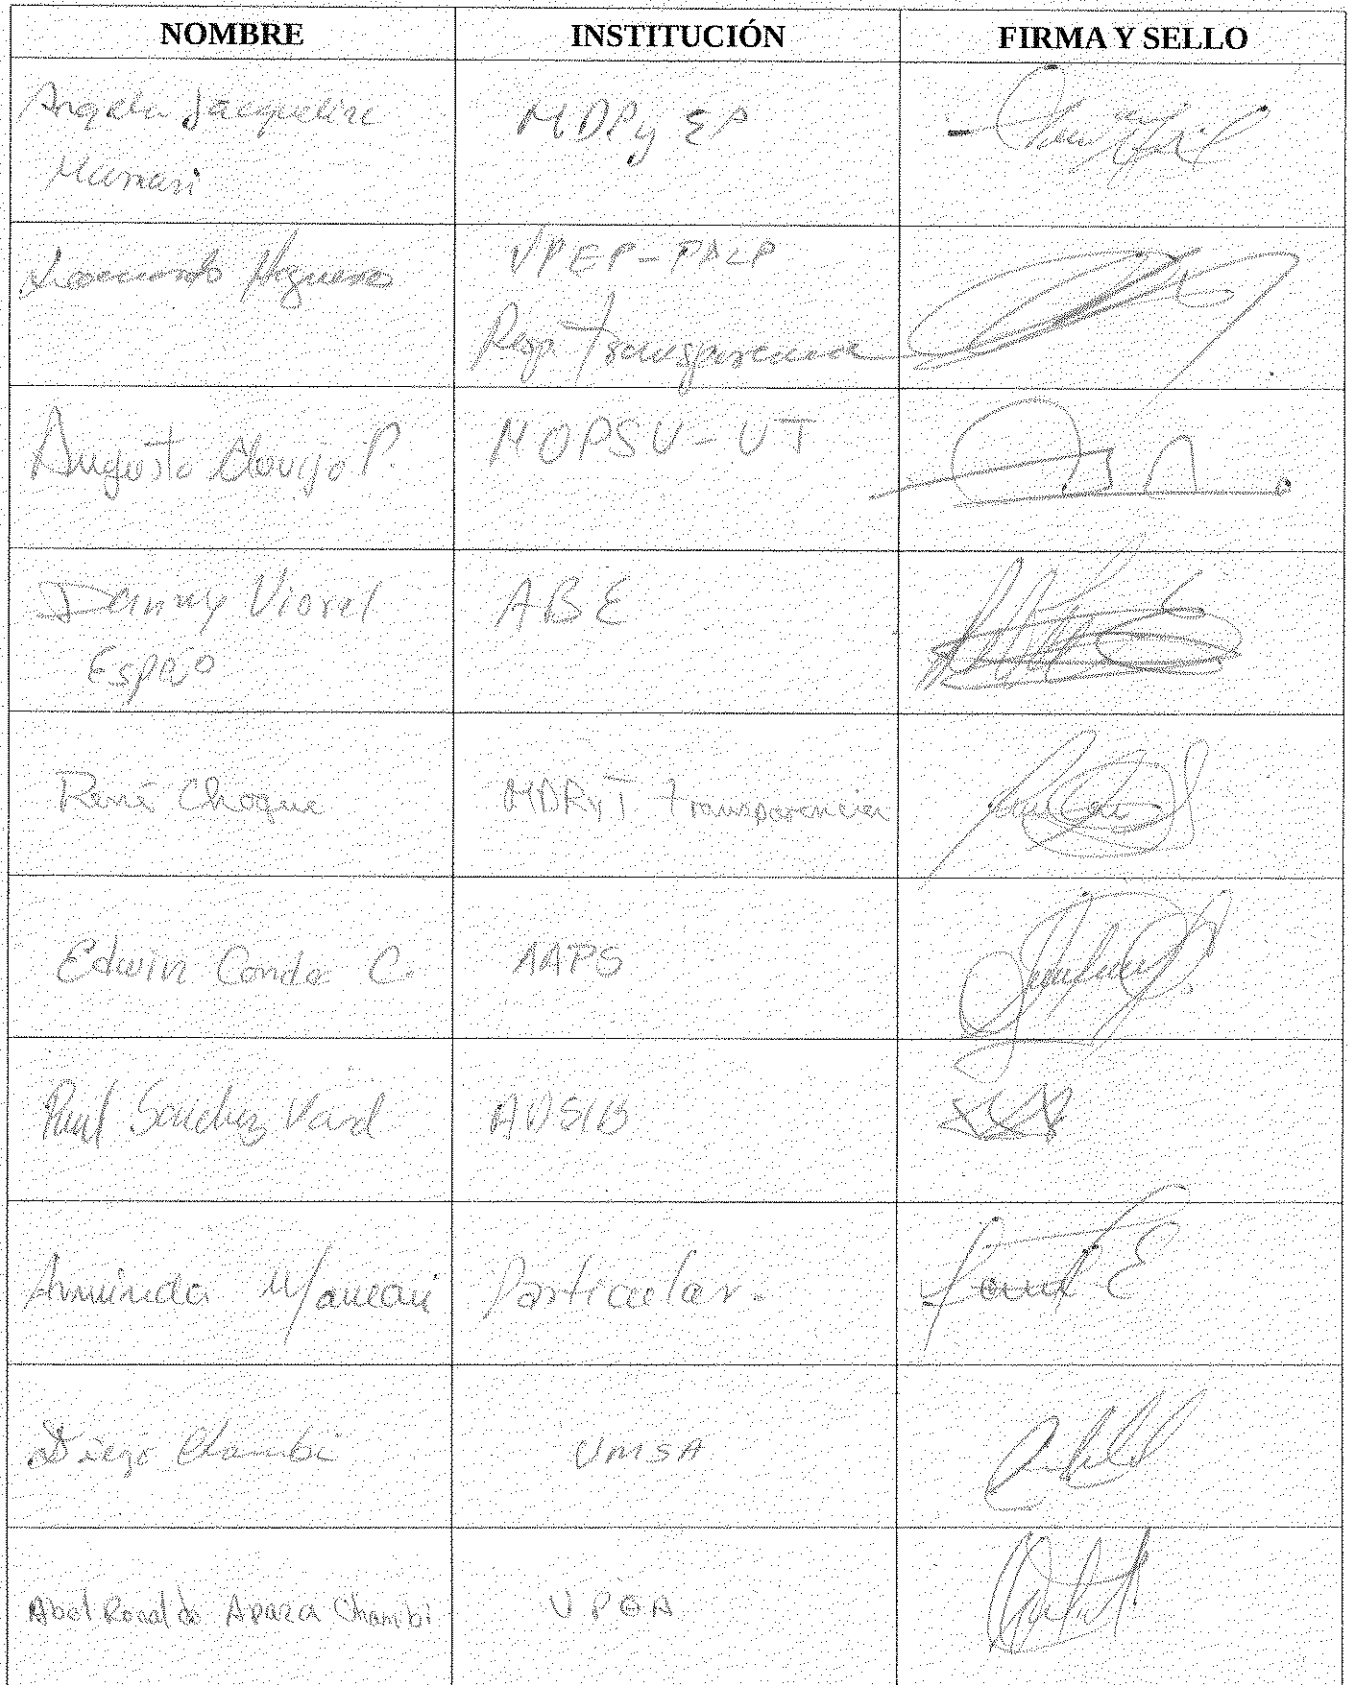 NOMBRE INSTITUCIÓN FIRMA Y SELLO
Angela Jacqueline MDPy EP
Mamani
Leonardo Higueras VPEP-FPLP
Resp. Transparencia
Augusto Clavijo P. MOPSV-UT
Danny Viorel ABE
Espejo
René Choque MDRyT Transparencia
Edwin Conde C. AAPS
Paul Sanchez ADSIB
Arminda Mamani Particular.
Diego Chambi UMSA
Abel Ronaldo Apaza Chambi UPEA